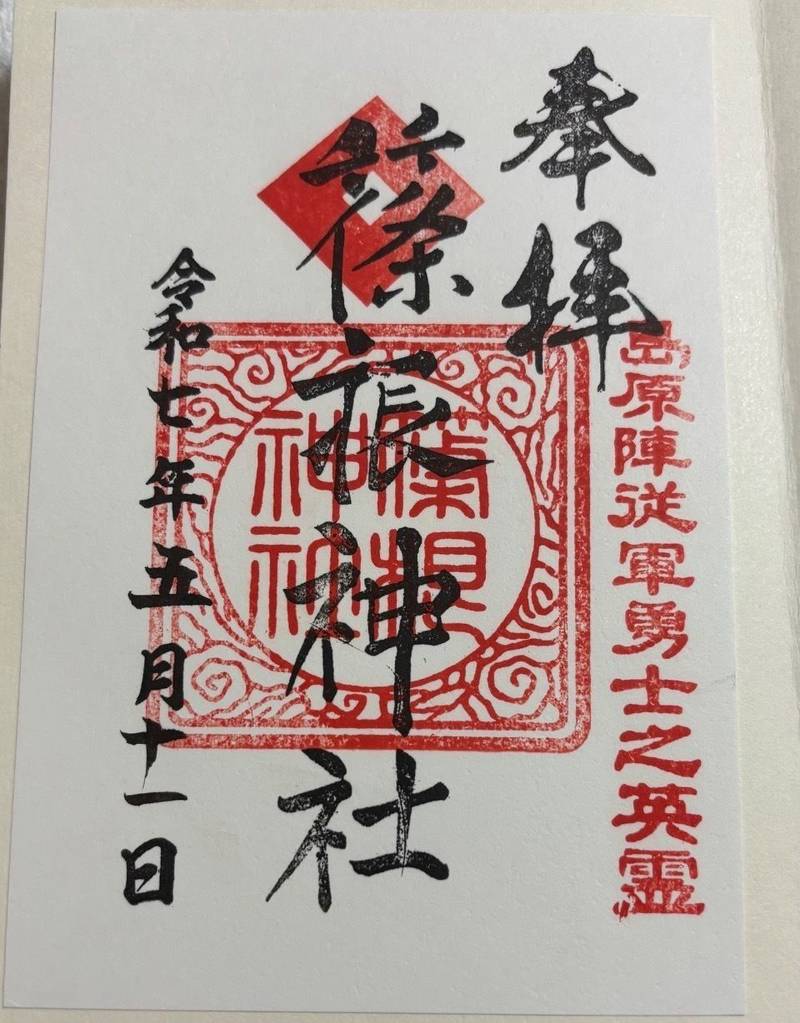 奉拝
島原陣従軍勇士之英霊
篠根神社
令和七年五月十一日